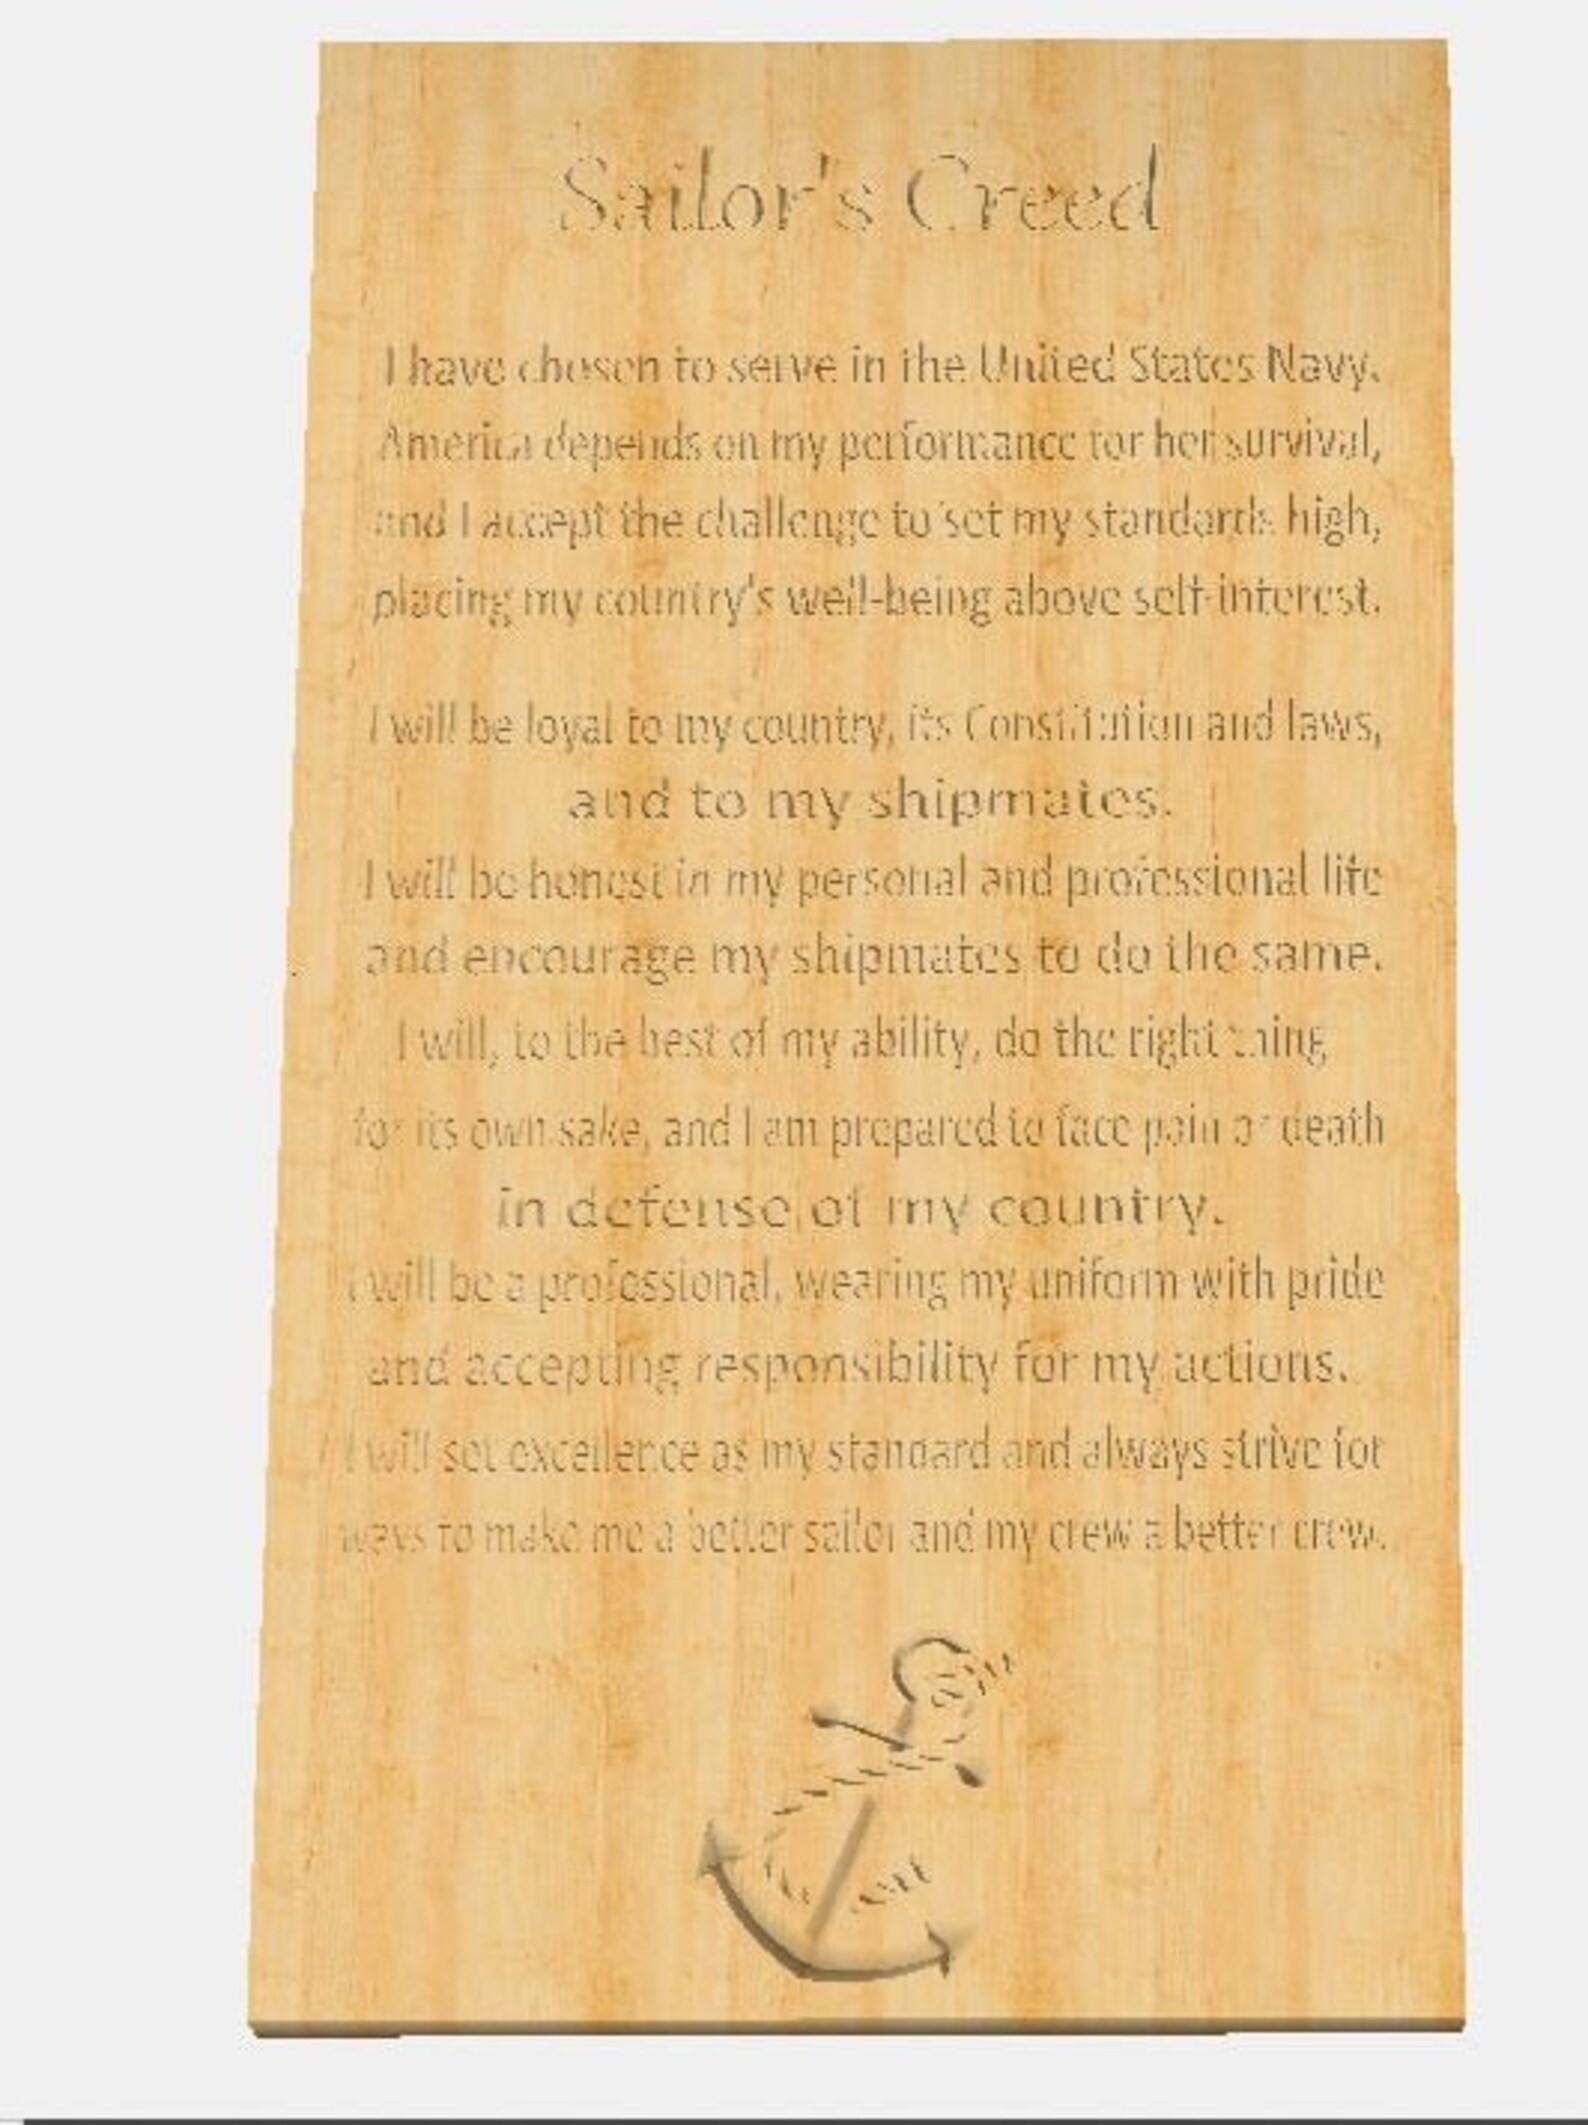 Sailor's Creed
I have chosen to serve in the United States Navy.
America depends on my performance for her survival,
and I accept the challenge to set my standards high,
placing my country's well-being above self-interest.
I will be loyal to my country, its Constitution and laws,
and to my shipmates.
I will be honest in my personal and professional life
and encourage my shipmates to do the same.
I will, to the best of my ability, do the right thing
for its own sake, and I am prepared to face pain or death
in defense of my country.
I will be a professional, wearing my uniform with pride
and accepting responsibility for my actions.
I will set excellence as my standard and always strive for
ways to make me a better sailor and my crew a better crew.